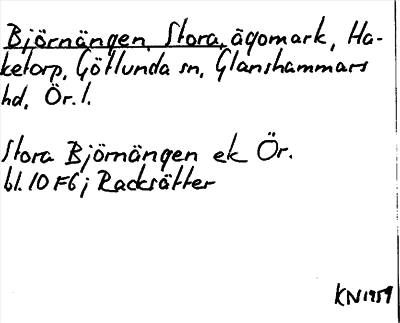 Björnängen, Stora, ägomark, Ha-
ketorp, Götlunda sn, Glanshammars
hd, Ör. l.
Stora Björnängen ek Ör.
bl. 10 F6; Racksätter
KN 1959